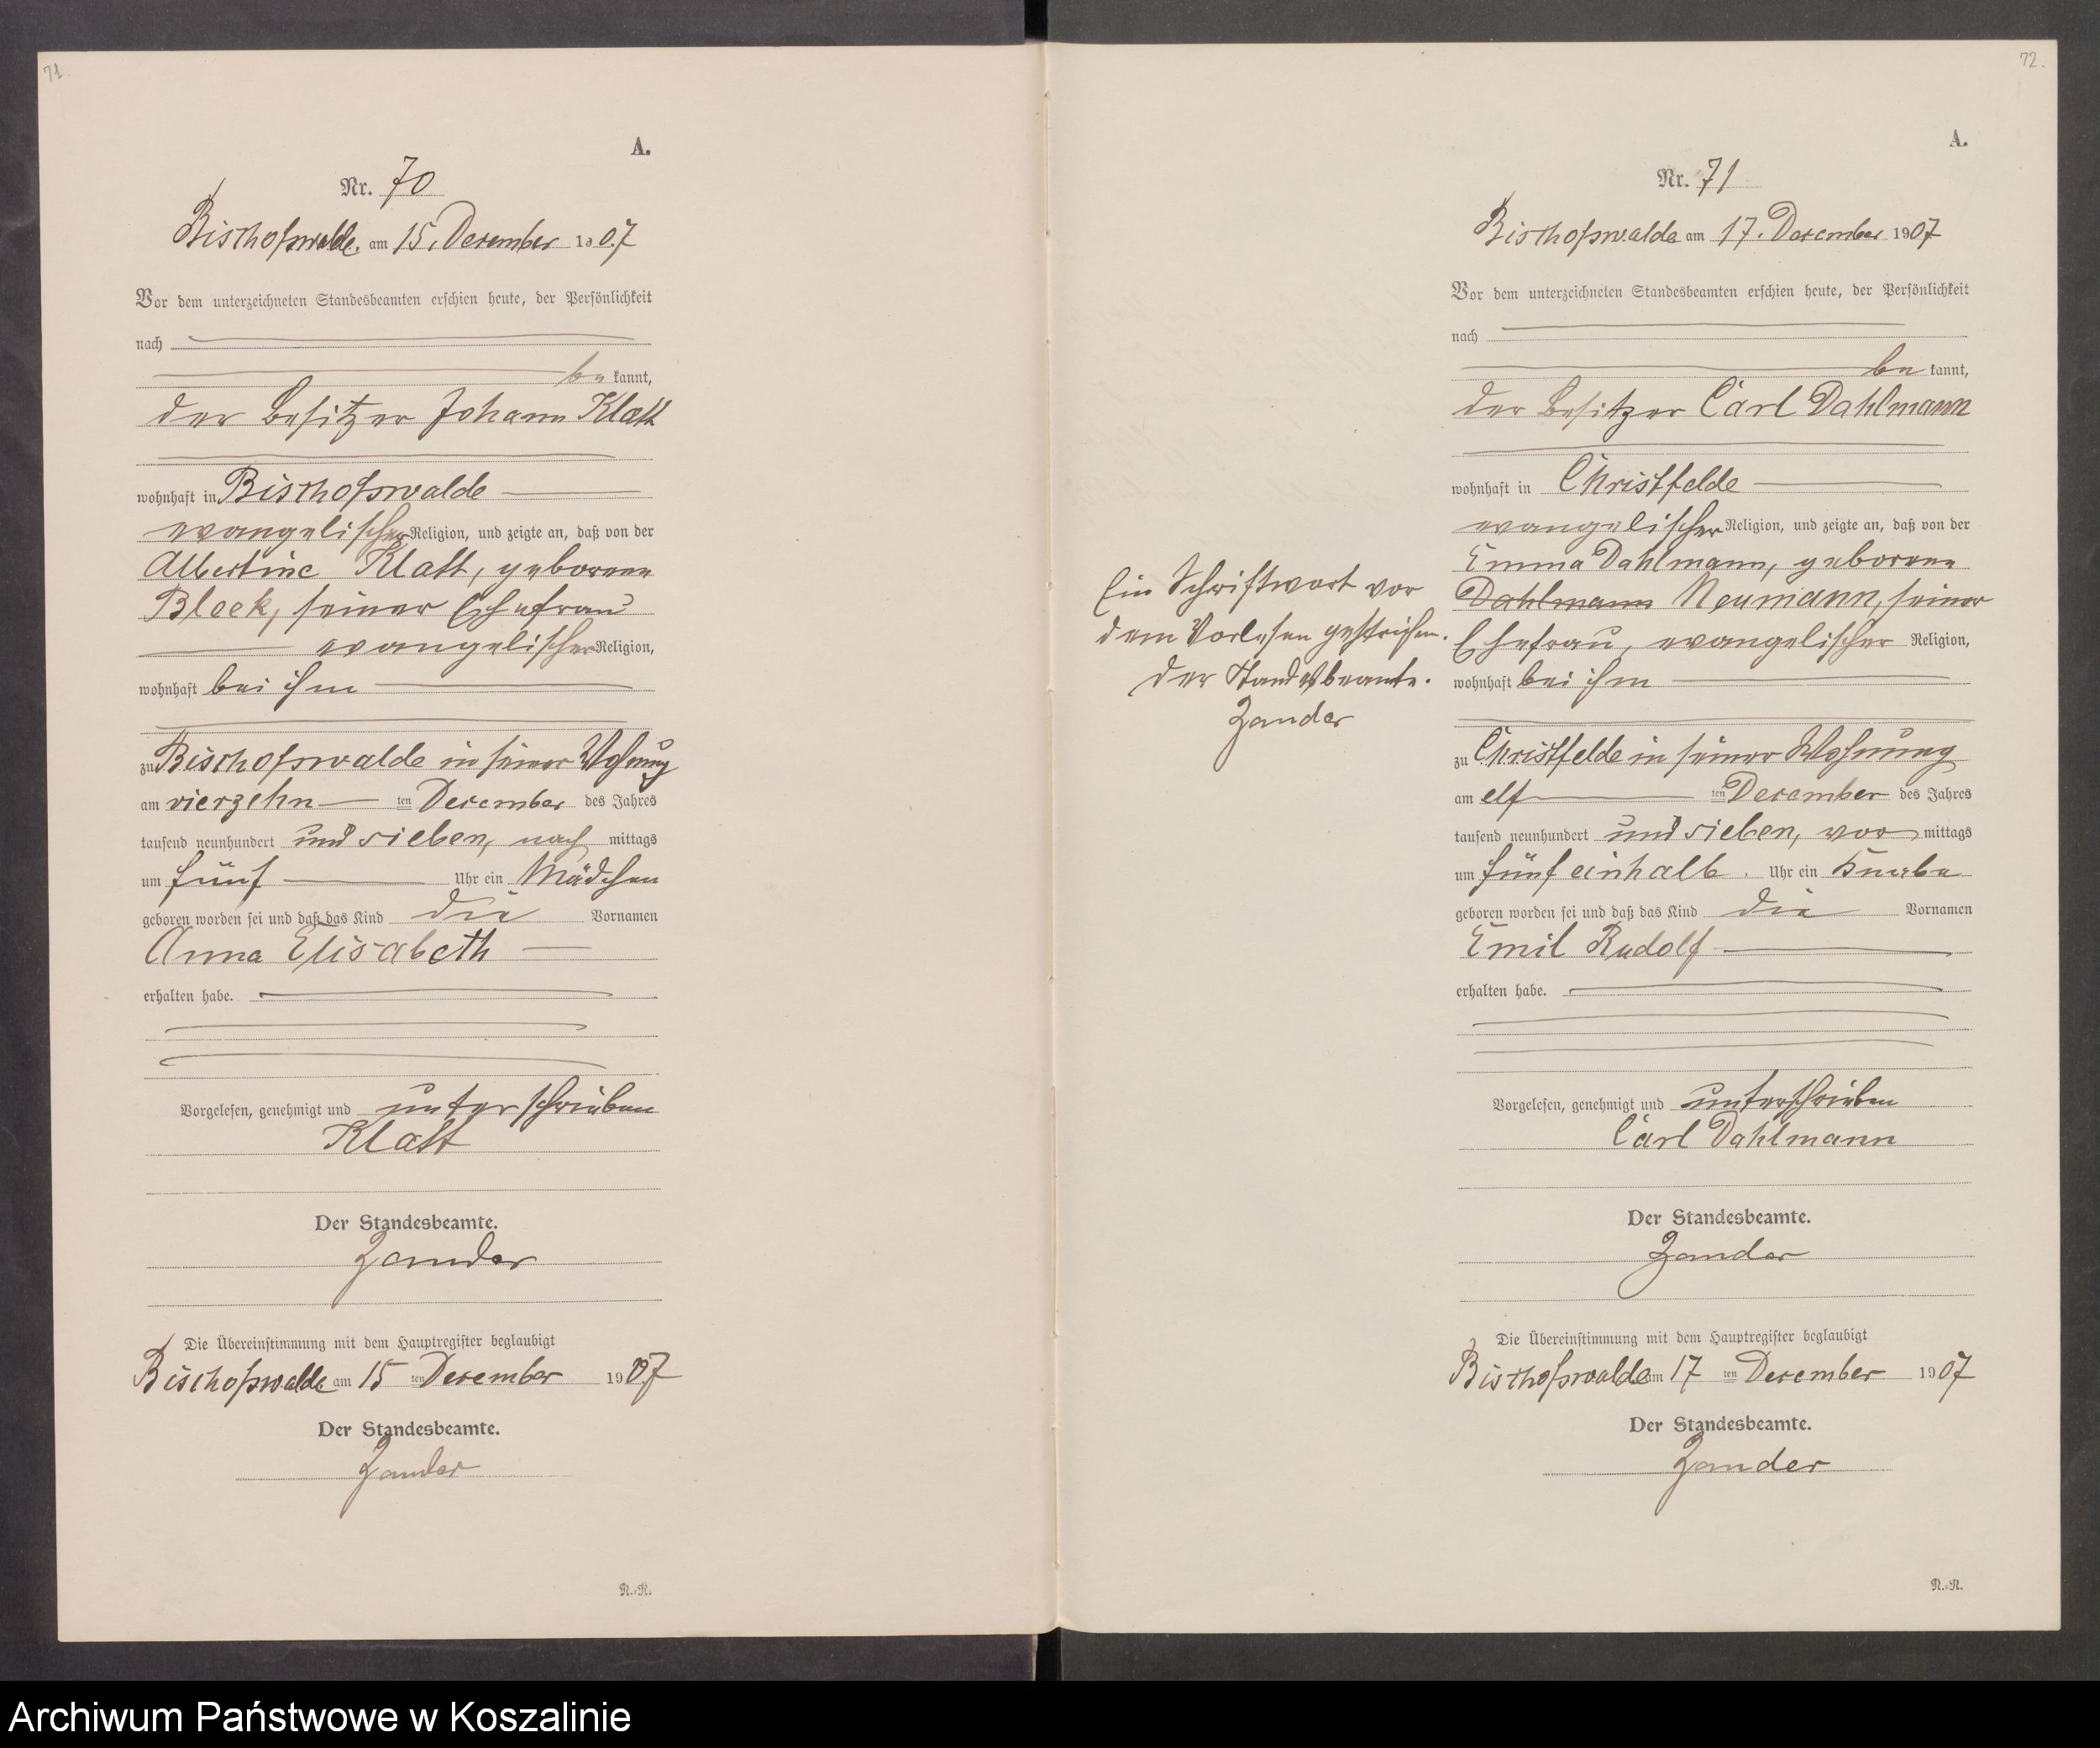 71.
A.
Nr. 70
Bischofswalde, am 15. December 1907
Vor dem unterzeichneten Standesbeamten erschien heute, der Persönlichkeit
nach
be kannt,
der Besitzer Johann Klatt
wohnhaft in Bischofswalde
evangelischer Religion, und zeigte an, daß von der
Albertine Klatt, geborenen
Bleek, seiner Ehefrau
evangelischer Religion,
wohnhaft bei ihm
zu Bischofswalde in seiner Wohnung
am vierzehn ten December des Jahres
tausend neunhundert und sieben, nach mittags
um fünf Uhr ein Mädchen
geboren worden sei und daß das Kind die Vornamen
Anna Elisabeth
erhalten habe.
Vorgelesen, genehmigt und unterschrieben
Klatt
Der Standesbeamte.
Zander
Die Übereinstimmung mit dem Hauptregister beglaubigt
Bischofswalde am 15 ten December 1907
Der Standesbeamte.
Zander
N.-N.
72.
A.
Nr. 71
Bischofswalde am 17. December 1907
Vor dem unterzeichneten Standesbeamten erschien heute, der Persönlichkeit
nach
be kannt,
der Besitzer Carl Dahlmann
wohnhaft in Christfelde
evangelischer Religion, und zeigte an, daß von der
Emma Dahlmann, geborenen
Dahlmann Neumann, seiner
Ehefrau, evangelischer Religion,
wohnhaft bei ihm
Ein Schriftwort vor
dem Vorlesen gestrichen.
Der Standesbeamte.
Zander
zu Christfelde in seiner Wohnung
am elf ten December des Jahres
tausend neunhundert und sieben, vor mittags
um fünf einhalb. Uhr ein Knabe
geboren worden sei und daß das Kind die Vornamen
Emil Rudolf
erhalten habe.
Vorgelesen, genehmigt und unterschrieben
Carl Dahlmann
Der Standesbeamte.
Zander
Die Übereinstimmung mit dem Hauptregister beglaubigt
Bischofswalde am 17 ten December 1907
Der Standesbeamte.
Zander
N.-N.
Archiwum Państwowe w Koszalinie